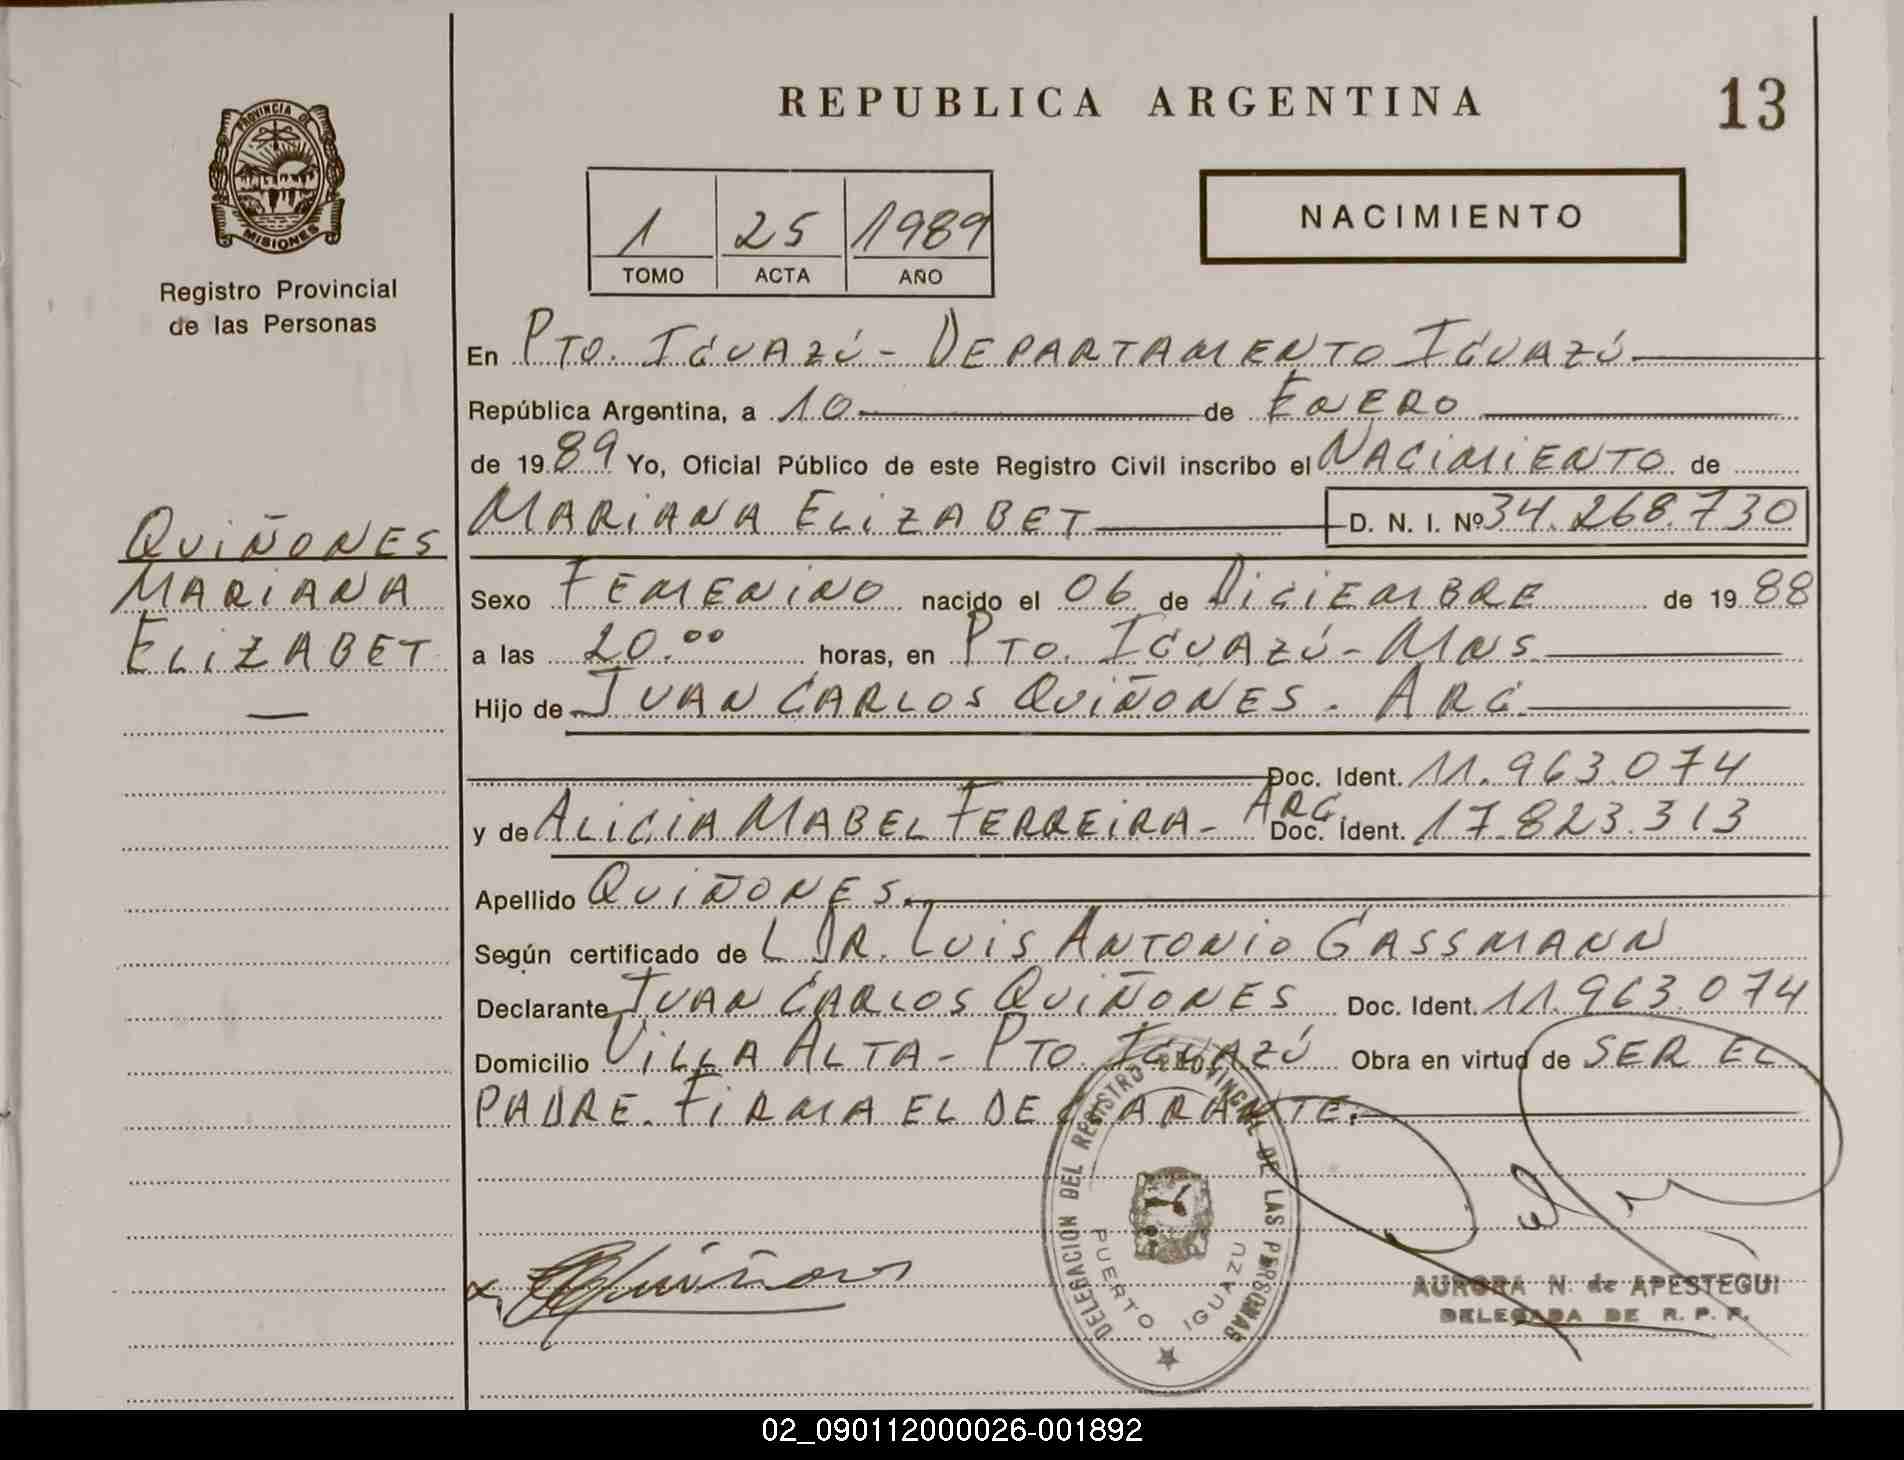 PROVINCIA DE
MISIONES
Registro Provincial
de las Personas
QUIÑONES
MARIANA
ELIZABET
REPUBLICA ARGENTINA
13
1 25 1989
TOMO ACTA AÑO
NACIMIENTO
En PTO. IGUAZÚ - DEPARTAMENTO IGUAZÚ
República Argentina, a 10 de ENERO
de 1989 Yo, Oficial Público de este Registro Civil inscribo el NACIMIENTO de
MARIANA ELIZABET D. N. I. Nº 34.268.730
Sexo FEMENINO nacido el 06 de DICIEMBRE de 1988
a las 20.00 horas, en PTO. IGUAZÚ - MNS
Hijo de JUAN CARLOS QUIÑONES. ARG.
Doc. Ident. 11.963.074
y de ALICIA MABEL FERREIRA - ARG. Doc. Ident. 17.823.313
Apellido QUIÑONES.
Según certificado de L DR. LUIS ANTONIO GASSMANN
Declarante JUAN CARLOS QUIÑONES Doc. Ident. 11.963.074
Domicilio VILLA ALTA - PTO. IGUAZÚ Obra en virtud de SER EL
PADRE. FIRMA EL DECLARANTE.
DELEGACION DEL REGISTRO PROVINCIAL DE LAS PERSONAS
PUERTO IGUAZU
AURORA N. de APESTEGUI
DELEGADA DE R. P. P.
02_090112000026-001892